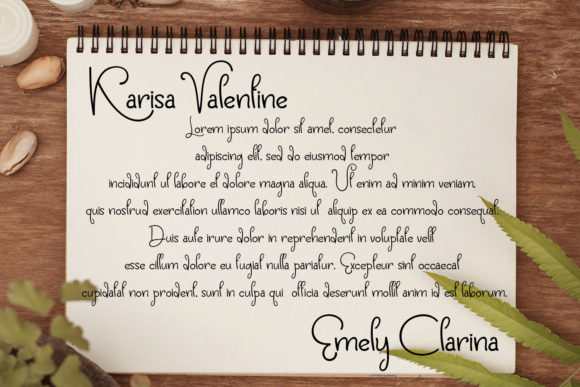 Karisa Valentine
Lorem ipsum dolor sit amet, consectetur
adipiscing elit, sed do eiusmod tempor
incididunt ut labore et dolore magna aliqua. Ut enim ad minim veniam,
quis nostrud exercitation ullamco laboris nisi ut aliquip ex ea commodo consequat.
Duis aute irure dolor in reprehenderit in voluptate velit
esse cillum dolore eu fugiat nulla pariatur. Excepteur sint occaecat
cupidatat non proident, sunt in culpa qui officia deserunt mollit anim id est laborum.
Emely Clarina